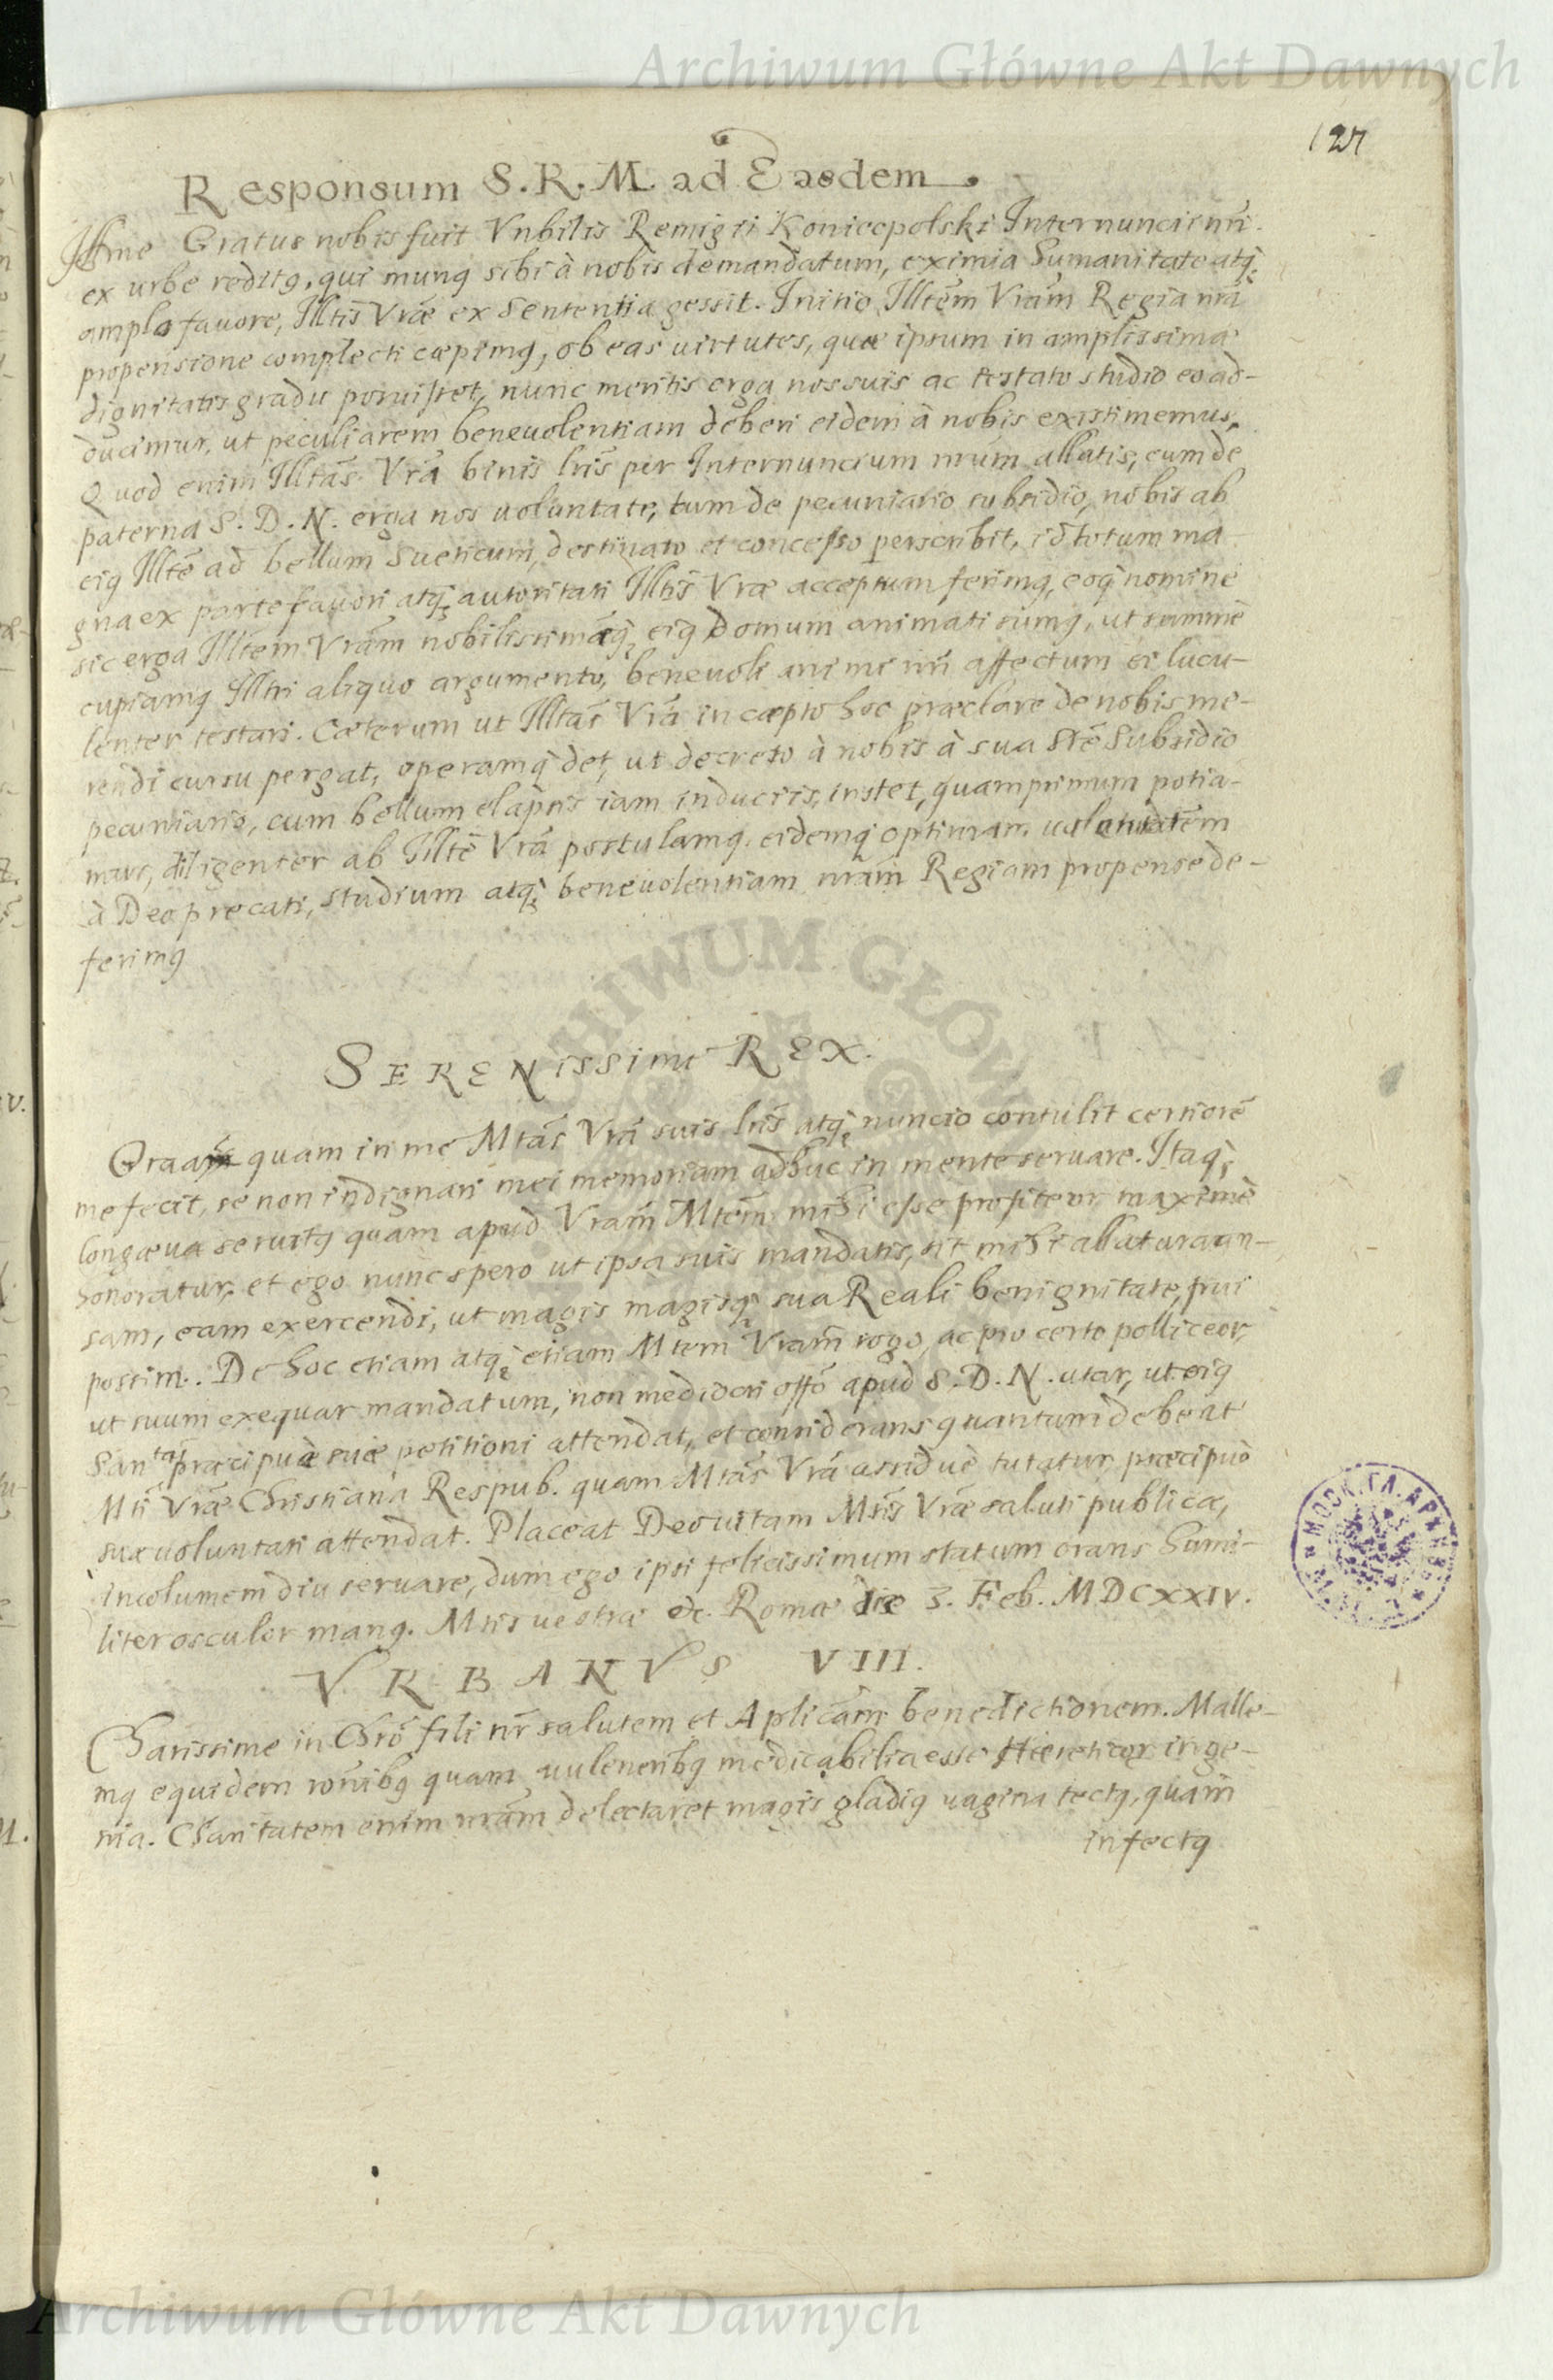 Archiwum Główne Akt Dawnych
127
Responsum S.R.M. ad Easdem
Illme Gratus nobis fuit Vnbilis Remigii Koniecpolski Internuncii nri
ex urbe reditꝰ, qui munꝰ sibi à nobis demandatum, eximia humanitate atq;
amplo fauore, Illtis Vrae ex sententia gessit. Initio Illtem Vram Regia nra
propensione complecti caepimꝰ, ob eas uirtutes, quae ipsum in amplissimae
dignitatis gradu posuisset, nunc meritis erga nos suis ac testato studio eo ad-
ducimur, ut peculiarem beneuolentiam deberi eidem à nobis existimemus.
Quod enim Illtas Vra binis lris per Internuncium nrum allatis, cum de
paterna S.D.N. erga nos uoluntate, tum de pecuniario subsidio, nobis ab
eiꝰ Illte ad bellum Sueticum, destinato et concesso perscribit, id totum ma-
gna ex parte fauori atq; autoritati Illtis Vrae acceptum ferimꝰ, eoq; nomine
sic erga Illtem Vram nobilissimaq; eiꝰ Domum animati sumꝰ, ut summè
cupiamꝰ Illtri aliquo argumento, beneuoli animi nri affectum ei lucu-
lenter testari. Caeterum ut Illtas Vra incaepto hoc praeclare de nobis me-
rendi cursu pergat, operamq; det, ut decreto à nobis à sua Ste Subsidio
pecuniario, cum bellum elapsis iam induciis, instet, quamprimum potia-
mur, diligenter ab Illte Vra postulamꝰ. eidemq; optimam ualetudinem
à Deo precati, studium atq; beneuolentiam nram Regiam propense de-
ferimꝰ
SERENissime REX.
quam in me Mtas Vra suis lris atq; nuncio contulit certiore
me fecit, se non indignari mei memoriam adhuc in mente seruare. Itaq;
longaeua seruitꝰ quam apud Vram Mtem mihi esse profiteor maximè
honoratur, et ego nunc spero ut ipsa suis mandatis, sit mihi allatura an-
sam, eam exercendi, ut magis magisq; sua Reali benignitate, frui
possim. De hoc etiam atq; etiam Mtem Vram rogo, ac pro certo polliceor,
ut suum exequar mandatum, non mediocri offo apud S.D.N. utar, ut eiꝰ
Santas praecipuè suae petitioni attendat, et considerans quantum debeat
Mti Vrae Christiana Respub. quam Mtas Vra assiduè tutatur, praecipuè
suae uoluntati attendat. Placeat Deo uitam Mtis Vrae saluti publicae,
incolumem diu seruare, dum ego ipsi felicissimum statum orans humi-
liter osculor manꝰ. Mtis uestrae etc. Romae die 3. Feb. MDCXXIV.
VRBANVS VIII.
Charissime in Chro fili nr salutem et Aplicam benedictionem. Malle-
mꝰ equidem ronibꝰ quam uulneribꝰ medicabilia esse Haereticor inge-
nia. Charitatem enim nram delectaret magis gladiꝰ uagina tectꝰ, quam
infectꝰ
Archiwum Główne Akt Dawnych